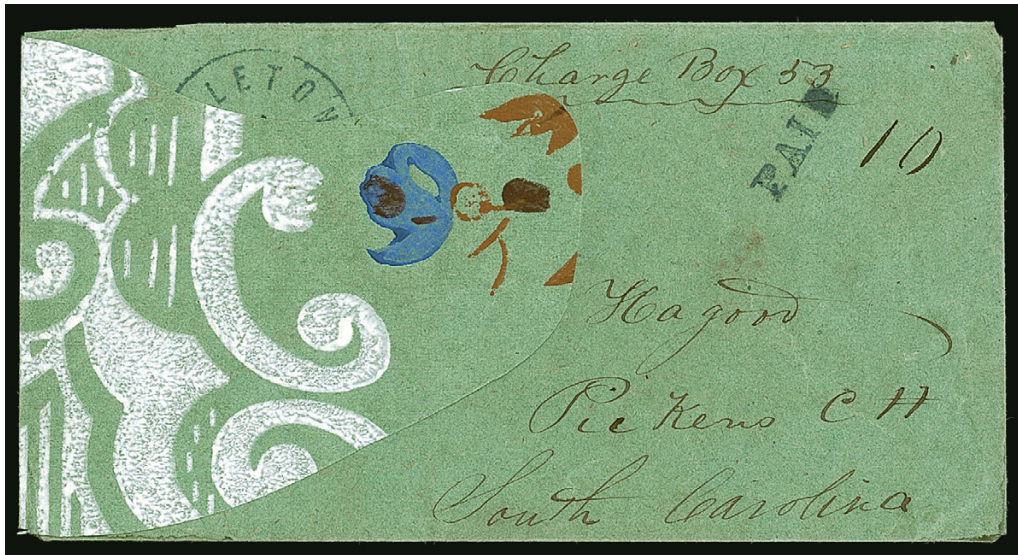 LETON
Charge Box 53
PAID
10
Hagood
Pickens C H
South Carolina